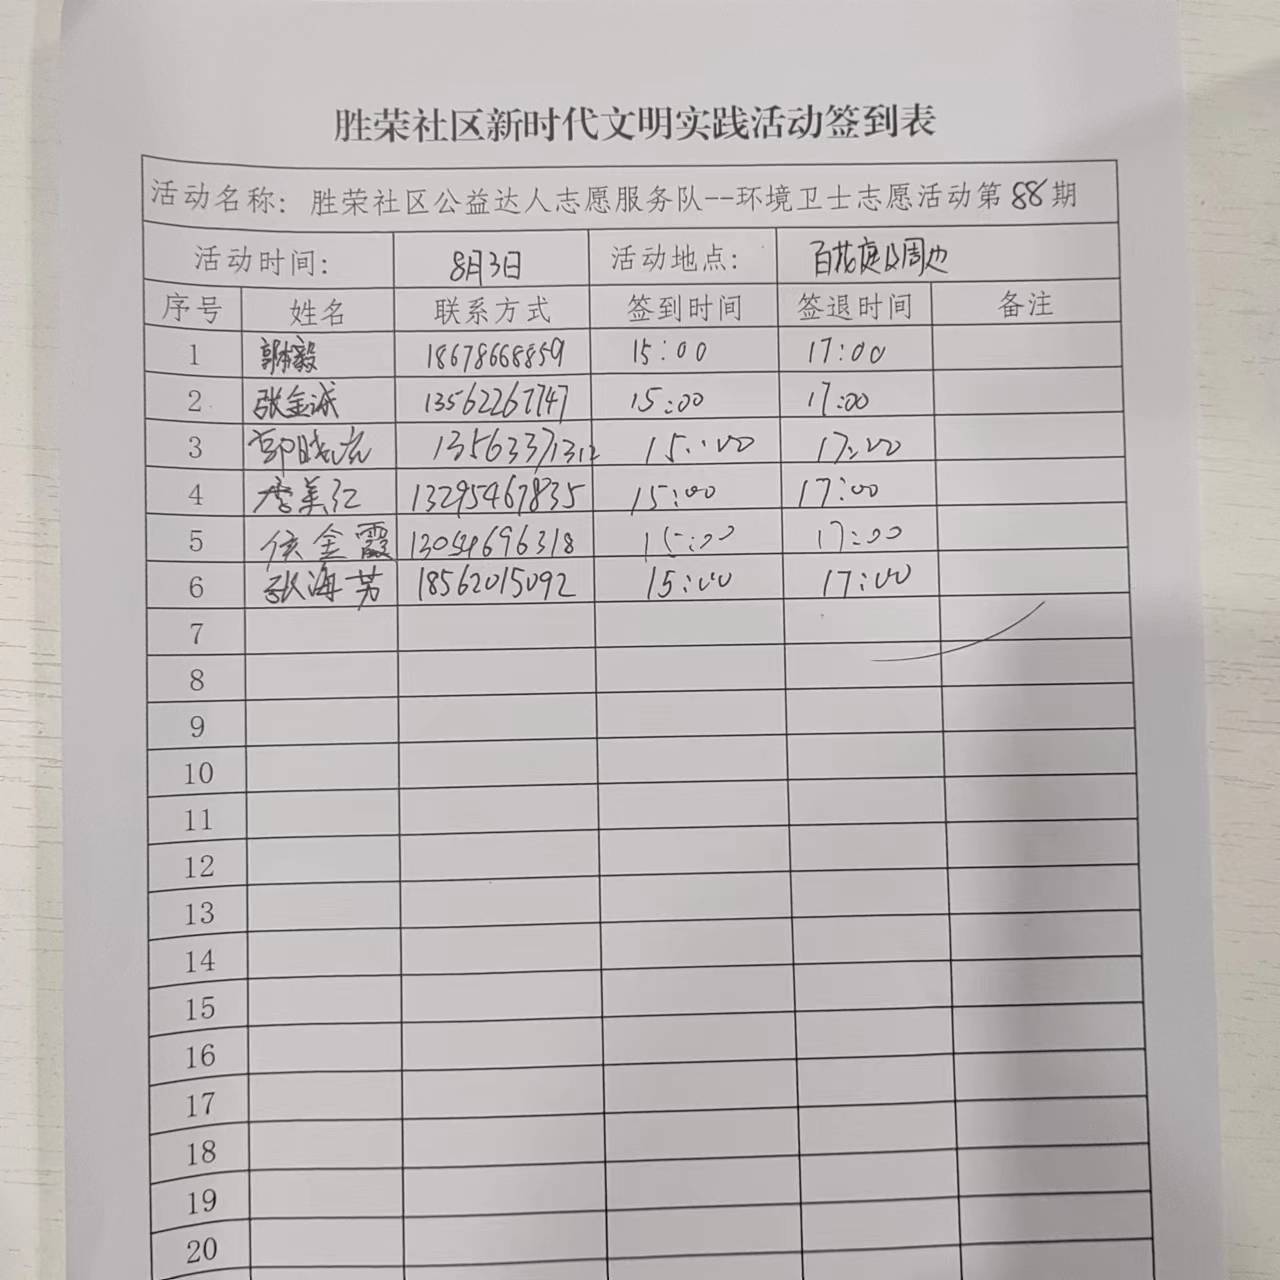 胜荣社区新时代文明实践活动签到表
活动名称：胜荣社区公益达人志愿服务队--环境卫士志愿活动第88期
活动时间： 8月3日 活动地点： 百花庭及周边
序号 姓名 联系方式 签到时间 签退时间 备注
1 18678668859 15:00 17:00
2 张金诚 13562267747 15:00 17:00
3 13563371312 15:00 17:00
4 李美红 13295467835 15:00 17:00
5 金霞 13054696318 15:00 17:00
6 张海芳 18562015092 15:00 17:00
7
8
9
10
11
12
13
14
15
16
17
18
19
20